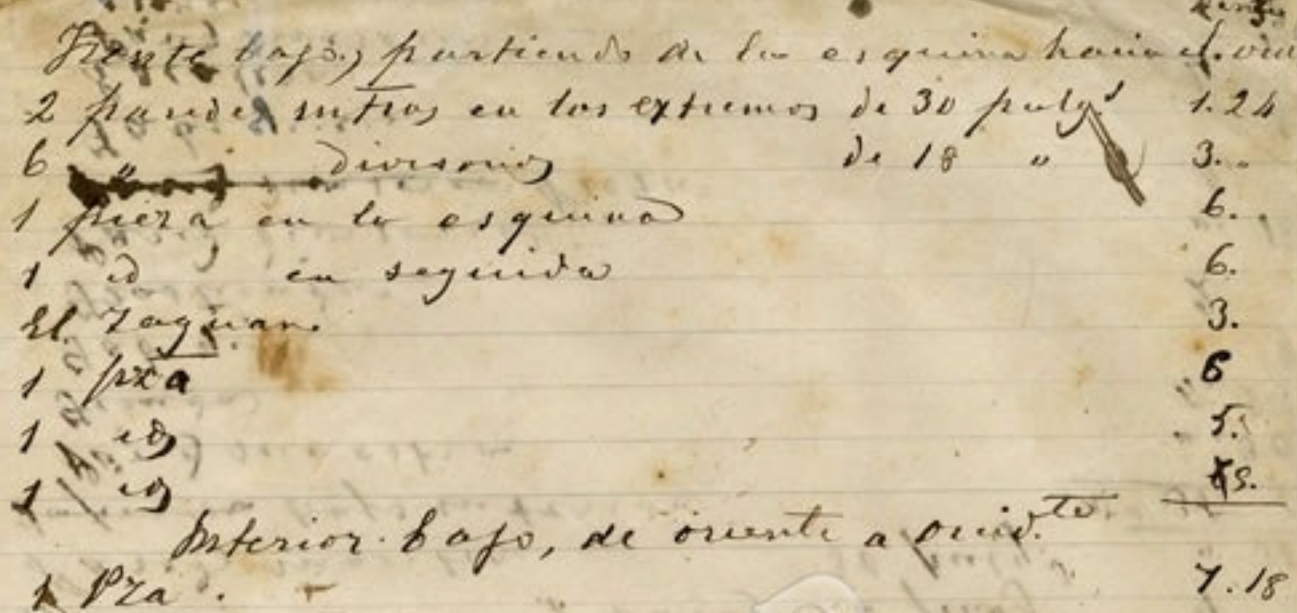 Frente bajo, partiendo de la esquina hacia el
2 paredes mtras en los extremos de 30 pulgs 1.24
6 " divisorias de 18 " 3. "
1 pieza en la esquina 6. "
1 id en seguida 6.
El zaguan. 3.
1 pza 6
1 id 5.
1 id 5.
Interior bajo, de oriente a occid.te
1 Pza. 7.18